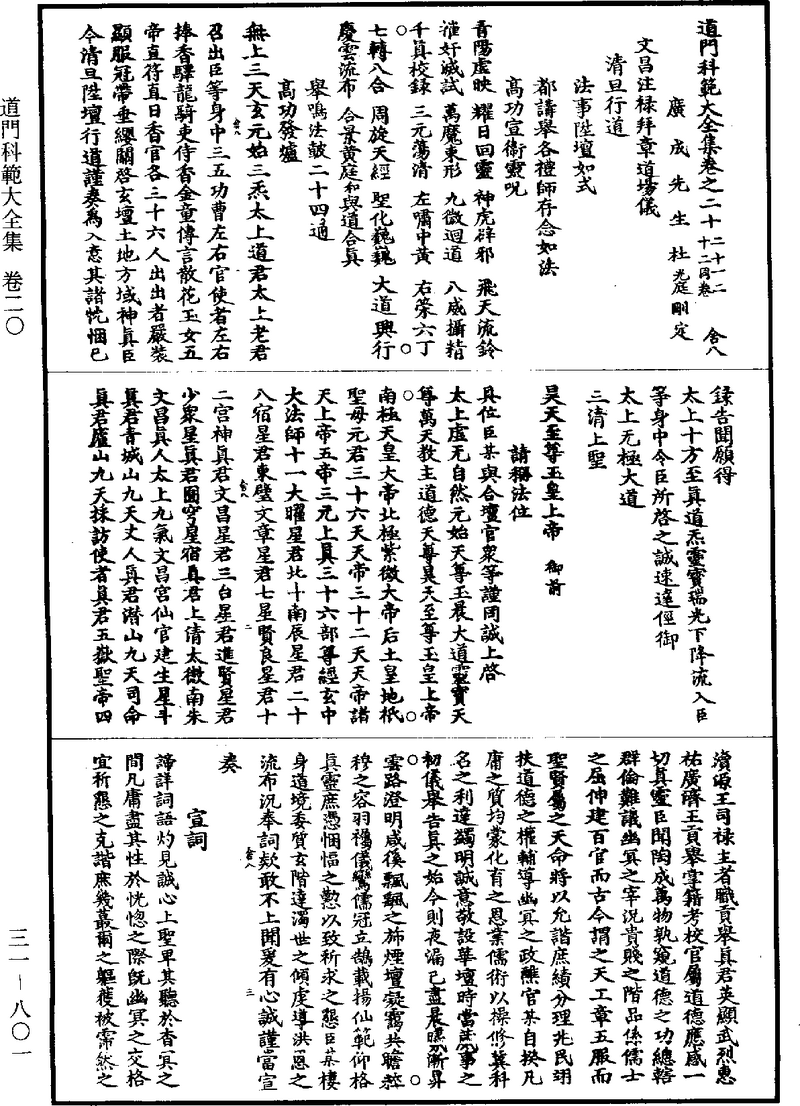 道門科範大全集卷之二十 二十一二十二同卷 舍八
廣成先生杜光庭刪定
文昌注祿拜章道場儀
清旦行道
法事陞壇如式
都講舉各禮師存念如法
高功宣衛靈呪
青陽虛映 耀日回靈 神虎辟邪 飛天流鈴
摧奸滅試 萬魔束形 九微迴道 八威攝精
千真校錄 三元蕩清 左嘯中黃 右榮六丁
七轉八合 周旋天經 聖化巍巍 大道興行
慶雲流布 合景黃庭 和與道合真
舉鳴法鼓二十四通
高功發爐
無上三天玄元始三炁太上道君太上老君
召出臣等身中三五功曹左右官使者左右
捧香驛龍騎吏侍香金童傳言散花玉女五
帝直符直日香官各三十六人出出者嚴裝
顯服冠帶垂纓關啓玄壇土地方域神真臣
今清旦陞壇行道謹奏為入意其諸忱悃已
錄告聞願得
太上十方至真道炁靈寶瑞光下降流入臣
等身中令臣所啓之誠速達徑御
太上无極大道
三清上聖
昊天至尊玉皇上帝 御前
請稱法位
具位臣某與合壇官衆等謹同誠上啓
太上虛无自然元始天尊玉晨大道靈寶天
尊萬天教主道德天尊昊天至尊玉皇上帝
南極天皇大帝北極紫微大帝后土皇地祇
聖母元君三十六天天帝三十二天天帝諸
天上帝五帝三元上真三十六部尊經玄中
大法師十一大曜星君北斗南辰星君二十
八宿星君東壁文章星君七星賢良星君十
二宮神真君文昌星君三台星君進賢星君
少衆星真君圜穹星宿真君上清太微南朱
文昌真人太上九氣文昌宮仙官建生星斗
真君青城山九天丈人真君潛山九天司命
真君廬山九天採訪使者真君五嶽聖帝四
瀆源王司祿主者職貢舉真君英顯武烈惠
祐廣濟王貢舉掌籍考校官屬道德應感一
切真靈臣聞陶成萬物孰窺道德之功總轄
群倫難議幽冥之宰況貴賤之階品係儒士
之屈伸建百官而古今謂之天工章五服而
聖賢屬之天命將以允諧庶績分理兆民翊
扶道德之權輔導幽冥之政醮官某自揆凡
庸之質均蒙化育之恩業儒術以操修冀科
名之利達蠲明誠意敬設華壇時當法事之
初儀舉告真之始今則夜漏已盡晨曦漸昇
雲路澄明咸徯飄飄之斾煙壇凝靄共瞻穆
穆之容羽褐儀鸞儒冠立鵠載揚仙範仰格
真靈庶憑悃愊之懃以致祈求之懇臣某棲
身道境委質玄階達濁世之傾虔導洪恩之
流布沉奉詞欵敢不上聞爰有心誠謹當宣
奏
宣詞
諦詳詞語灼見誠心上聖卑其聽於杳冥之
間凡庸盡其性於恍惚之際旣幽冥之交格
宜祈懇之克諧庶幾蕞爾之軀獲被霈然之
道門科範大全集 卷二〇
三一—八〇一